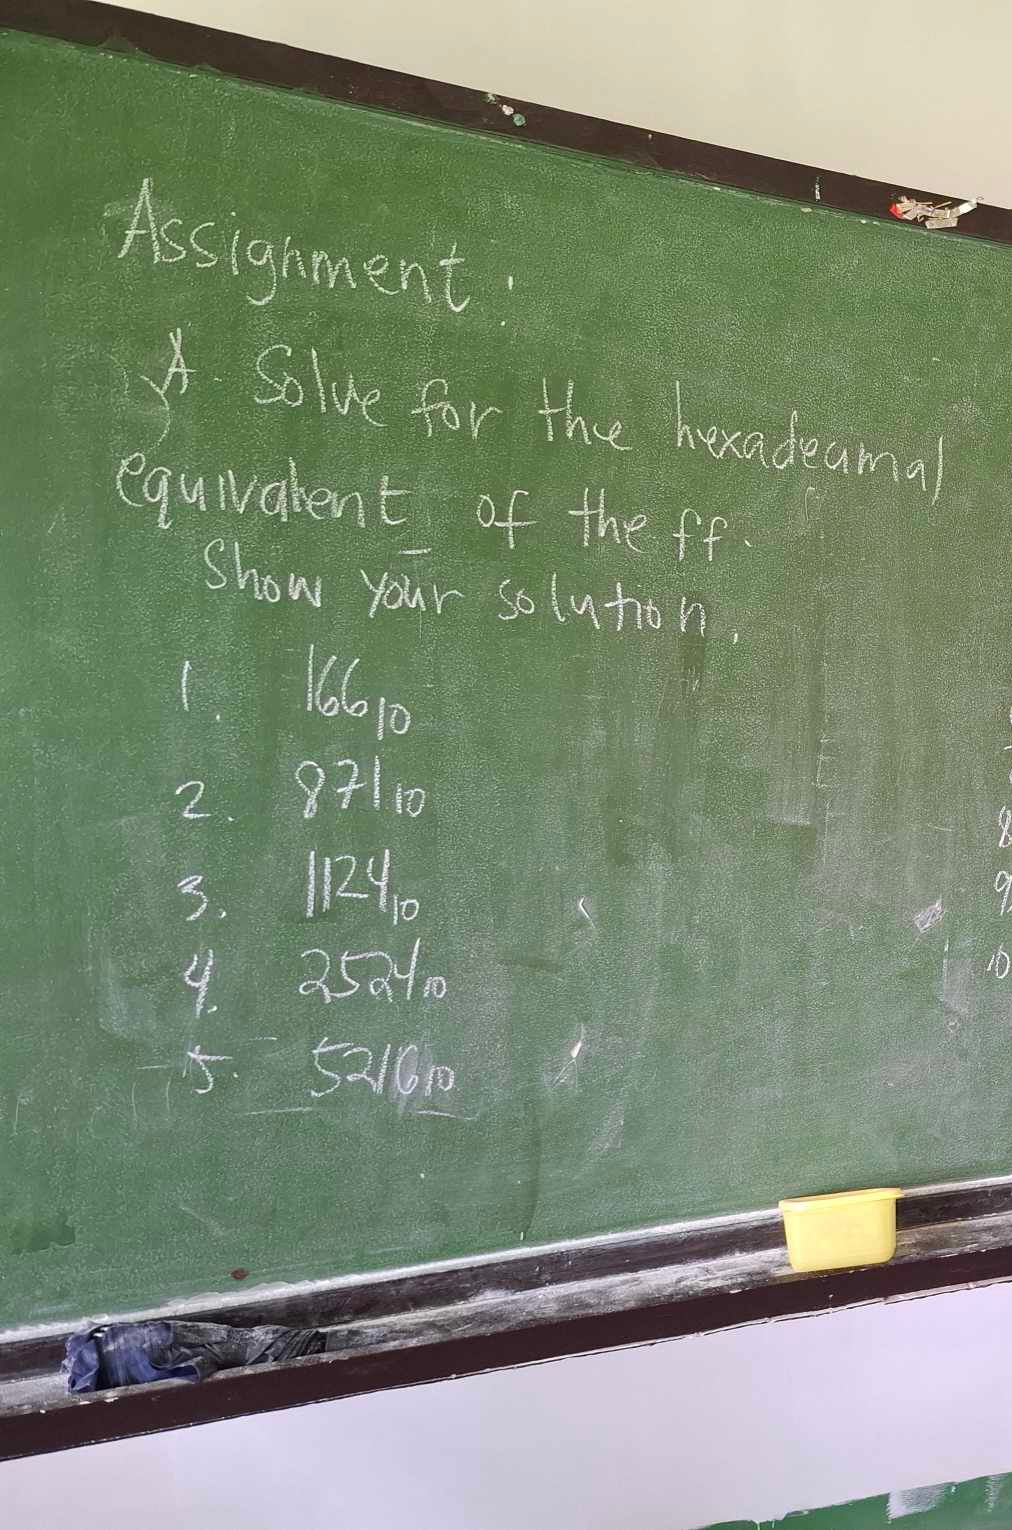 Assignment:
A. Solve for the hexadecimal
equivalent of the ff.
Show your solution.
1. 166₁₀
2. 871₁₀
3. 1124₁₀
4. 2524₁₀
5. 5216₁₀
8
9
10